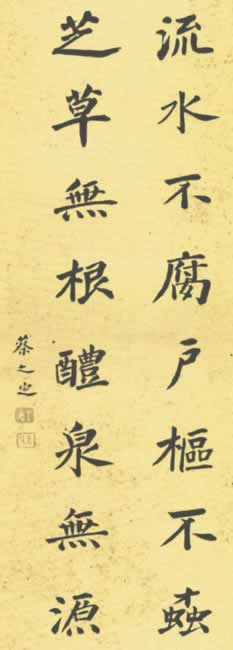 流水不腐戶樞不蠹
芝草無根醴泉無源
蔡之定